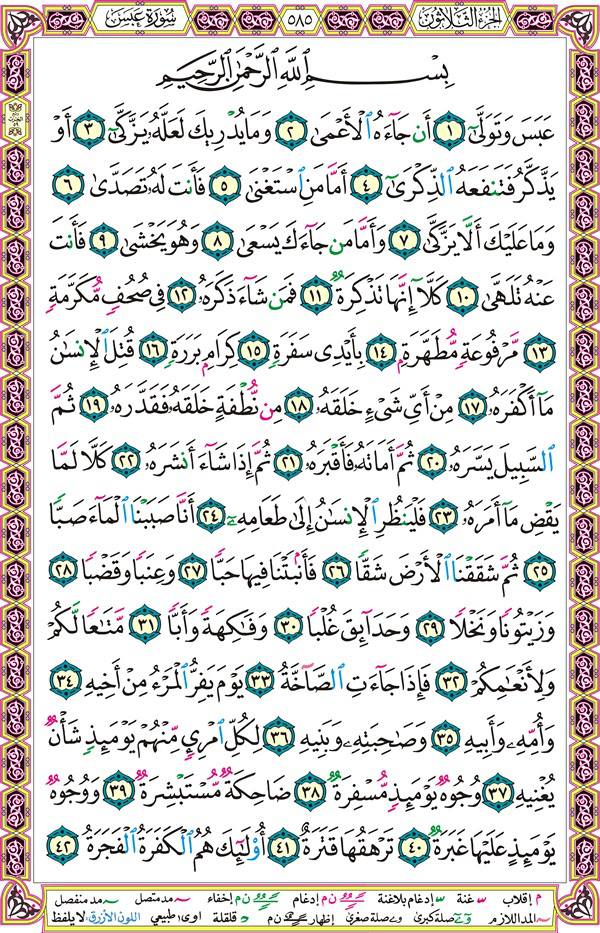 الجزء الثلاثون ٥٨٥ سورة عبس
بِسْمِ ٱللَّهِ ٱلرَّحْمَٰنِ ٱلرَّحِيمِ
عَبَسَ وَتَوَلَّىٰٓ ١ أَن جَآءَهُ ٱلْأَعْمَىٰ ٢ وَمَا يُدْرِيكَ لَعَلَّهُۥ يَزَّكَّىٰٓ ٣ أَوْ
يَذَّكَّرُ فَتَنفَعَهُ ٱلذِّكْرَىٰٓ ٤ أَمَّا مَنِ ٱسْتَغْنَىٰ ٥ فَأَنتَ لَهُۥ تَصَدَّىٰ ٦
وَمَا عَلَيْكَ أَلَّا يَزَّكَّىٰ ٧ وَأَمَّا مَن جَآءَكَ يَسْعَىٰ ٨ وَهُوَ يَخْشَىٰ ٩ فَأَنتَ
عَنْهُ تَلَهَّىٰ ١٠ كَلَّآ إِنَّهَا تَذْكِرَةٌ ١١ فَمَن شَآءَ ذَكَرَهُۥ ١٢ فِى صُحُفٍ مُّكَرَّمَةٍ
١٣ مَّرْفُوعَةٍ مُّطَهَّرَةٍۭ ١٤ بِأَيْدِى سَفَرَةٍ ١٥ كِرَامٍۭ بَرَرَةٍ ١٦ قُتِلَ ٱلْإِنسَٰنُ
مَآ أَكْفَرَهُۥ ١٧ مِنْ أَىِّ شَىْءٍ خَلَقَهُۥ ١٨ مِن نُّطْفَةٍ خَلَقَهُۥ فَقَدَّرَهُۥ ١٩ ثُمَّ
ٱلسَّبِيلَ يَسَّرَهُۥ ٢٠ ثُمَّ أَمَاتَهُۥ فَأَقْبَرَهُۥ ٢١ ثُمَّ إِذَا شَآءَ أَنشَرَهُۥ ٢٢ كَلَّا لَمَّا
يَقْضِ مَآ أَمَرَهُۥ ٢٣ فَلْيَنظُرِ ٱلْإِنسَٰنُ إِلَىٰ طَعَامِهِۦٓ ٢٤ أَنَّا صَبَبْنَا ٱلْمَآءَ صَبًّا
٢٥ ثُمَّ شَقَقْنَا ٱلْأَرْضَ شَقًّا ٢٦ فَأَنۢبَتْنَا فِيهَا حَبًّا ٢٧ وَعِنَبًا وَقَضْبًا ٢٨
وَزَيْتُونًا وَنَخْلًا ٢٩ وَحَدَآئِقَ غُلْبًا ٣٠ وَفَٰكِهَةً وَأَبًّا ٣١ مَّتَٰعًا لَّكُمْ
وَلِأَنْعَٰمِكُمْ ٣٢ فَإِذَا جَآءَتِ ٱلصَّآخَّةُ ٣٣ يَوْمَ يَفِرُّ ٱلْمَرْءُ مِنْ أَخِيهِ ٣٤
وَأُمِّهِۦ وَأَبِيهِ ٣٥ وَصَٰحِبَتِهِۦ وَبَنِيهِ ٣٦ لِكُلِّ ٱمْرِئٍ مِّنْهُمْ يَوْمَئِذٍ شَأْنٌ
يُغْنِيهِ ٣٧ وُجُوهٌ يَوْمَئِذٍ مُّسْفِرَةٌ ٣٨ ضَاحِكَةٌ مُّسْتَبْشِرَةٌ ٣٩ وَوُجُوهٌ
يَوْمَئِذٍ عَلَيْهَا غَبَرَةٌ ٤٠ تَرْهَقُهَا قَتَرَةٌ ٤١ أُو۟لَٰٓئِكَ هُمُ ٱلْكَفَرَةُ ٱلْفَجَرَةُ ٤٢
م إقلاب غنة إدغام بلاغنة ن م إدغام ن م إخفاء مد متصل مد منفصل
المد اللازم صلة كبرى صلة صغرى إظهار اوى طبيعي قلقلة اللون الأزرق لا يلفظ